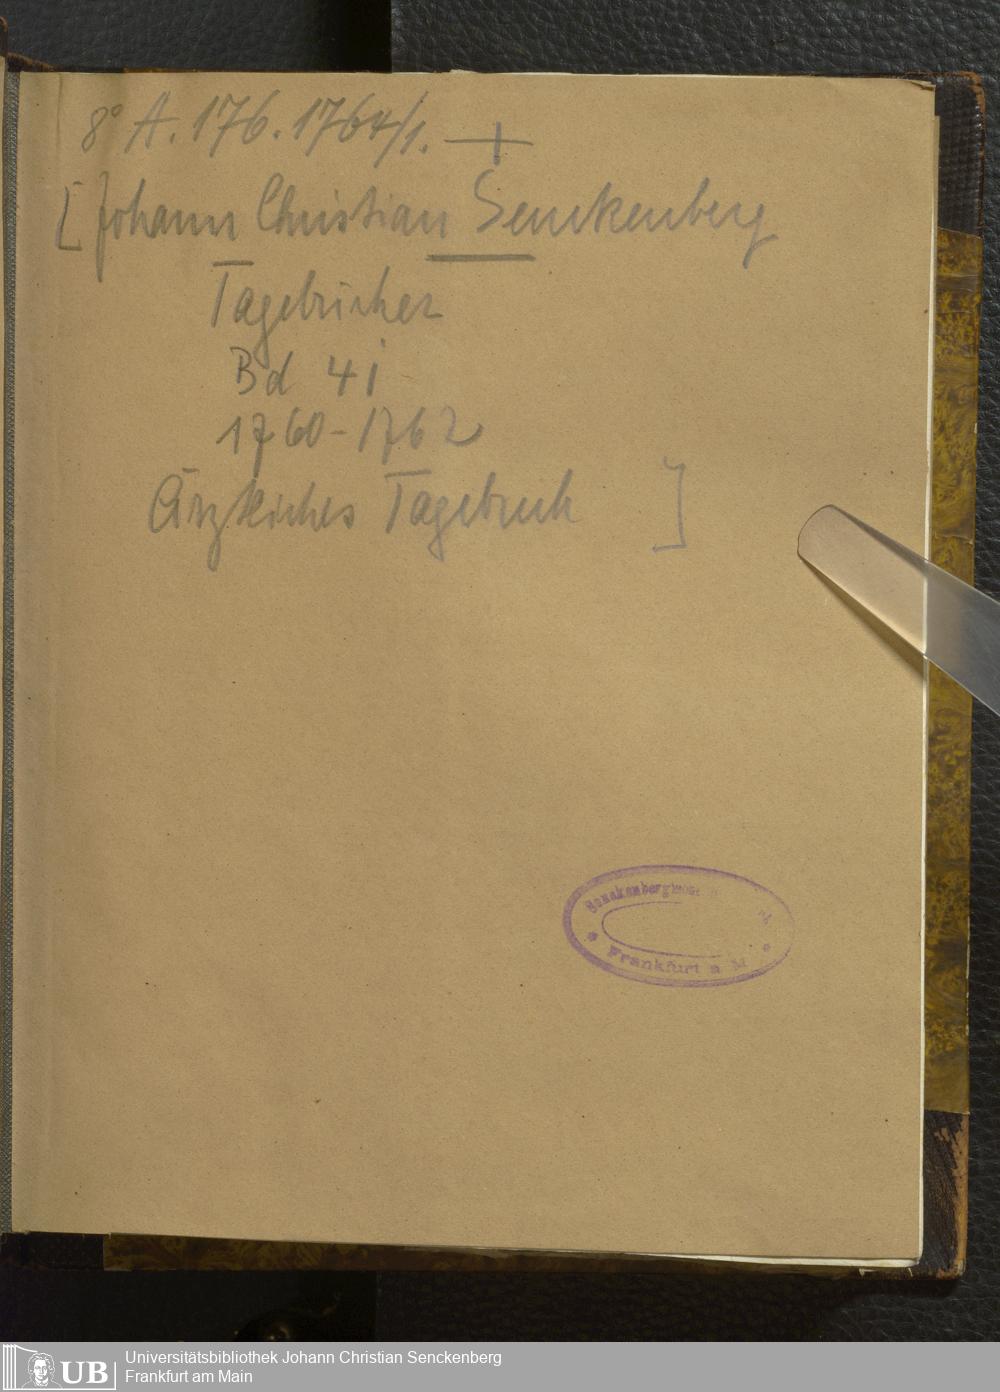 8° A. 176. 1764/1. +
[Johann Christian Senckenberg
Tagebücher
Bd 41
1760-1762
Ärztliches Tagebuch ]
Senckenbergische
Frankfurt a M
UB
Universitätsbibliothek Johann Christian Senckenberg
Frankfurt am Main